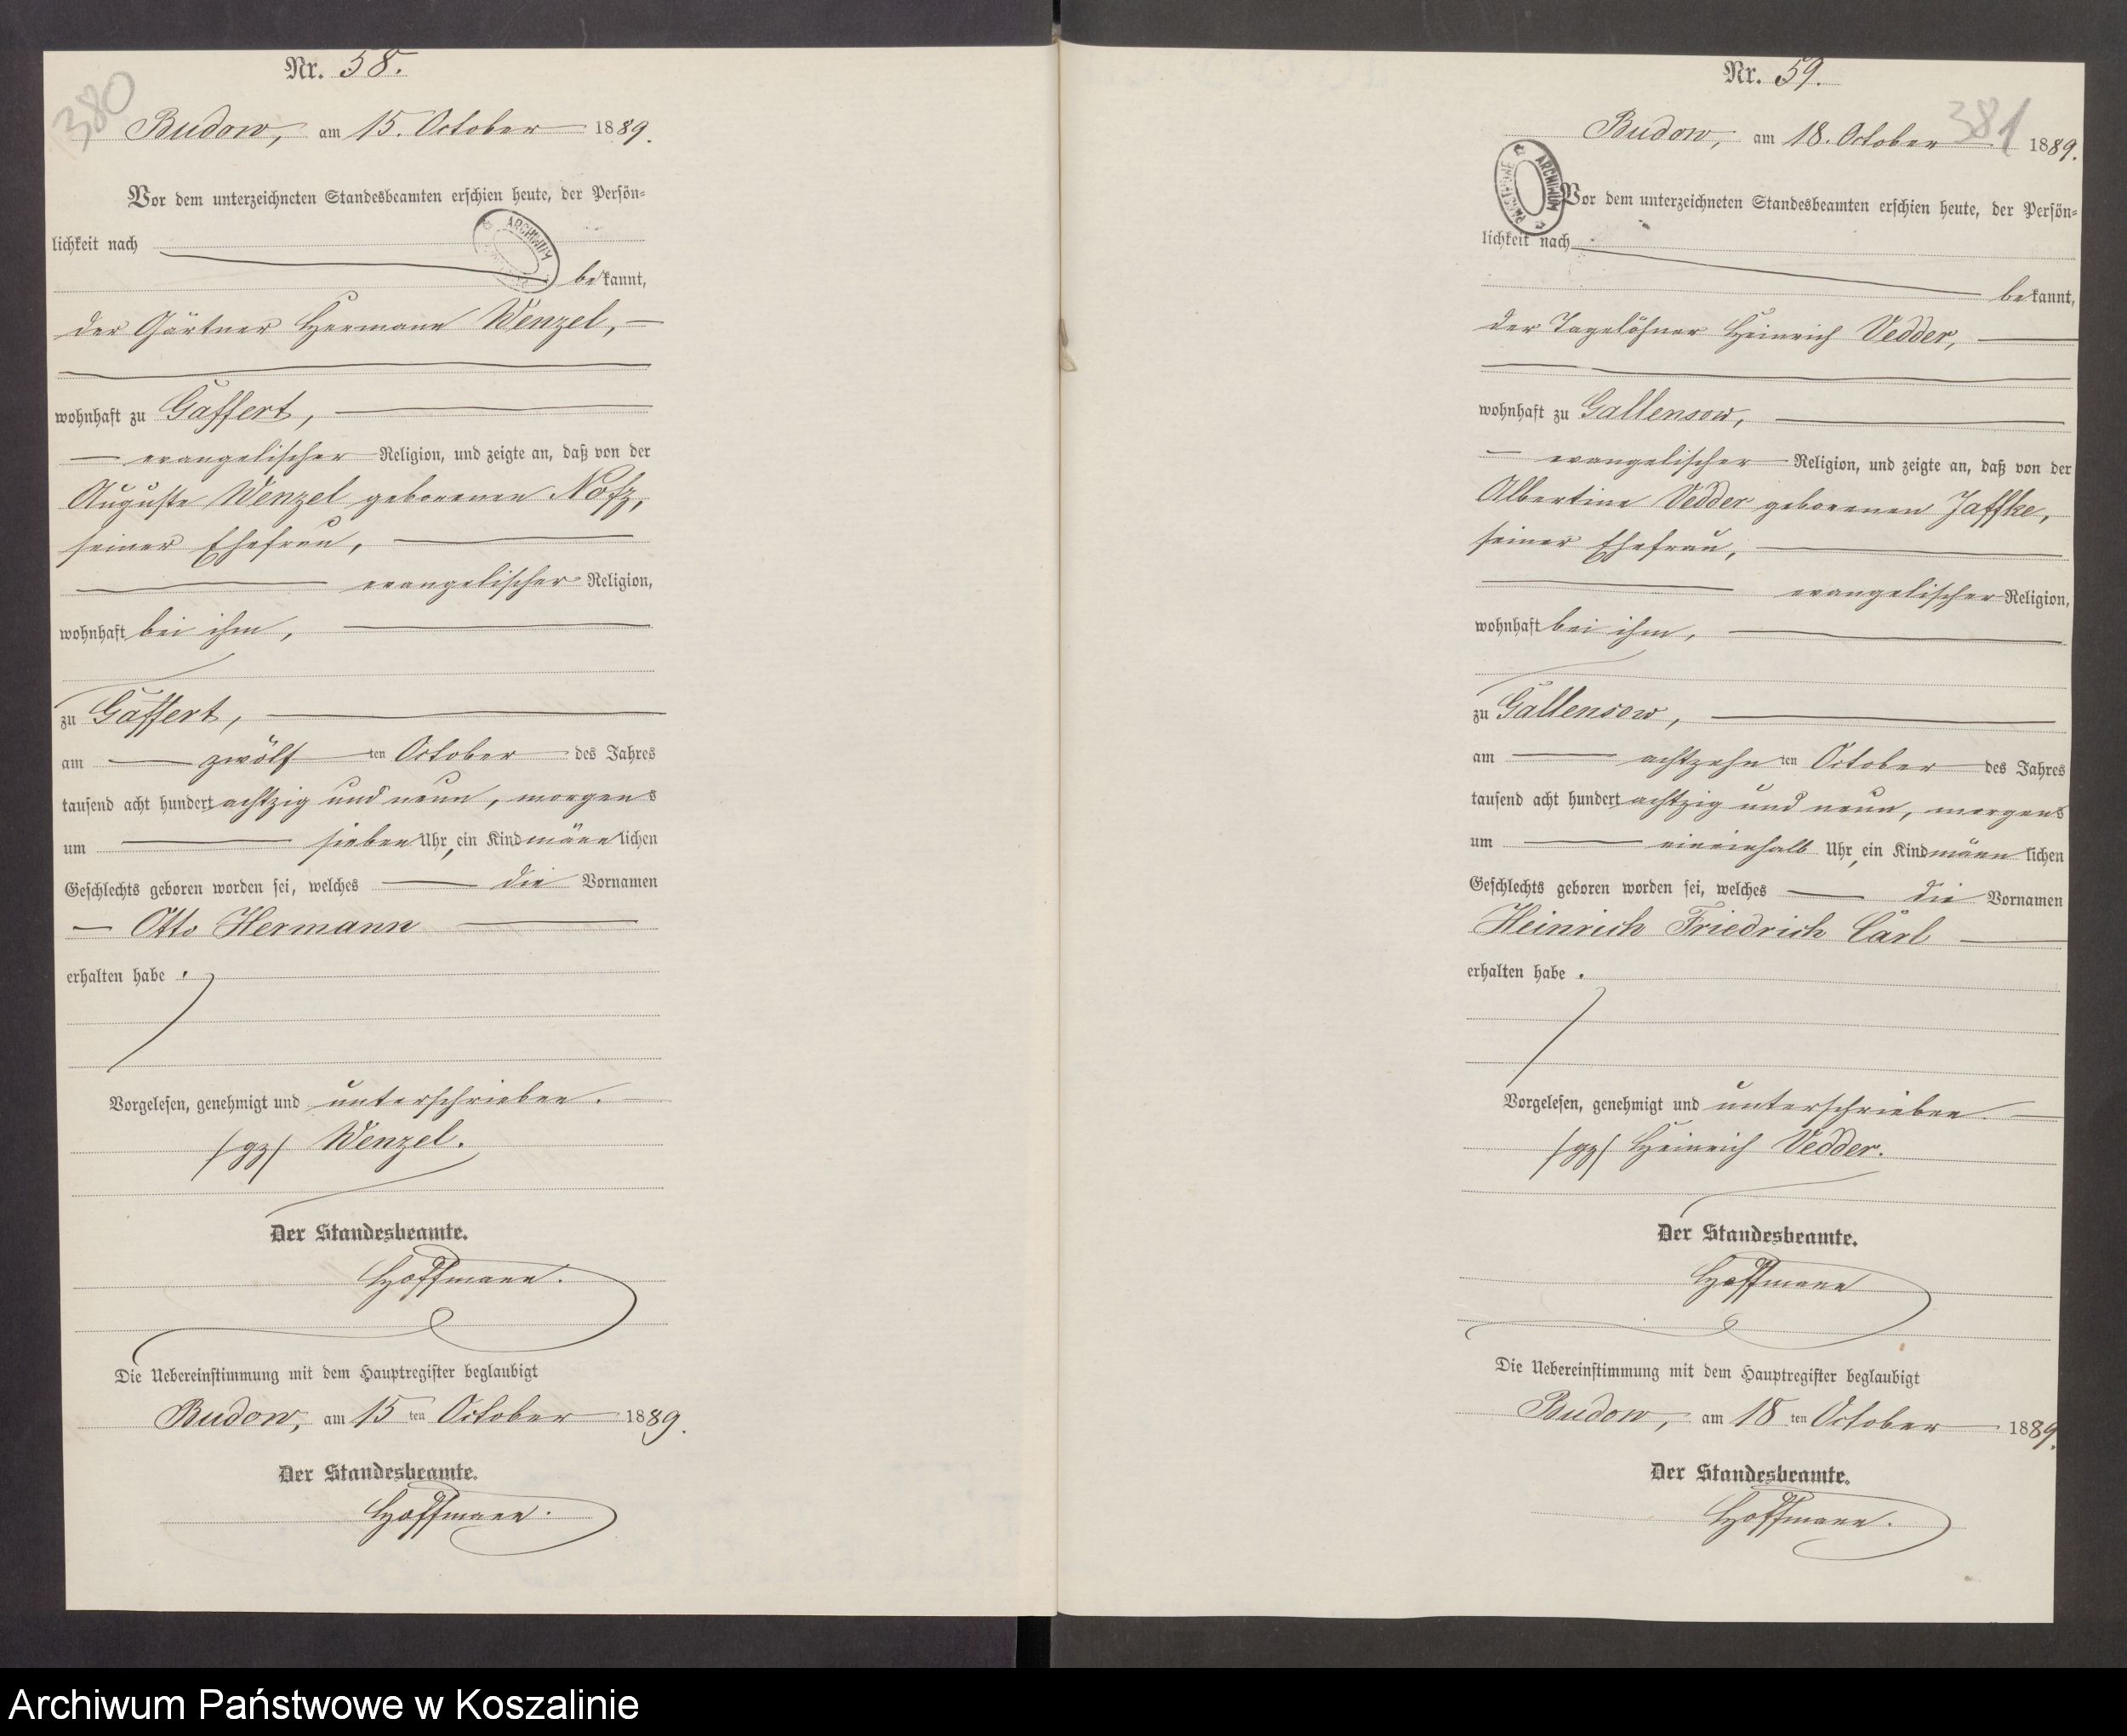 Nr. 58.
380
Budow, am 15. October 1889.
Vor dem unterzeichneten Standesbeamten erschien heute, der Persön-
lichkeit nach
bekannt,
der Gärtner Hermann Wenzel,
wohnhaft zu Gaffert,
evangelischer Religion, und zeigte an, daß von der
Auguste Wenzel geborenen
seiner Ehefrau,
evangelischer Religion,
wohnhaft bei ihm,
zu Gaffert,
am zwölf ten October des Jahres
tausend acht hundert achtzig und neun, morgens
um sieben Uhr, ein Kind männlichen
Geschlechts geboren worden sei, welches die Vornamen
Otto Hermann
erhalten habe.
Vorgelesen, genehmigt und unterschrieben.
/gz/ Wenzel.
Der Standesbeamte.
Hoffmann.
Die Uebereinstimmung mit dem Hauptregister beglaubigt
Budow, am 15 ten October 1889.
Der Standesbeamte.
Hoffmann.
Nr. 59.
381
Budow, am 18. October 1889.
ARCHIWUM
Vor dem unterzeichneten Standesbeamten erschien heute, der Persön-
lichkeit nach
bekannt,
der Tagelöhner Heinrich Vedder,
wohnhaft zu Gallensow,
evangelischer Religion, und zeigte an, daß von der
Albertine Vedder geborenen Jaffke,
seiner Ehefrau,
evangelischer Religion,
wohnhaft bei ihm,
zu Gallensow,
am achtzehn ten October des Jahres
tausend acht hundert achtzig und neun, morgens
um eineinhalb Uhr, ein Kind männlichen
Geschlechts geboren worden sei, welches die Vornamen
Heinrich Friedrich Carl
erhalten habe.
Vorgelesen, genehmigt und unterschrieben.
/gz/ Heinrich Vedder.
Der Standesbeamte.
Hoffmann
Die Uebereinstimmung mit dem Hauptregister beglaubigt
Budow, am 18 ten October 1889.
Der Standesbeamte.
Hoffmann.
Archiwum Państwowe w Koszalinie